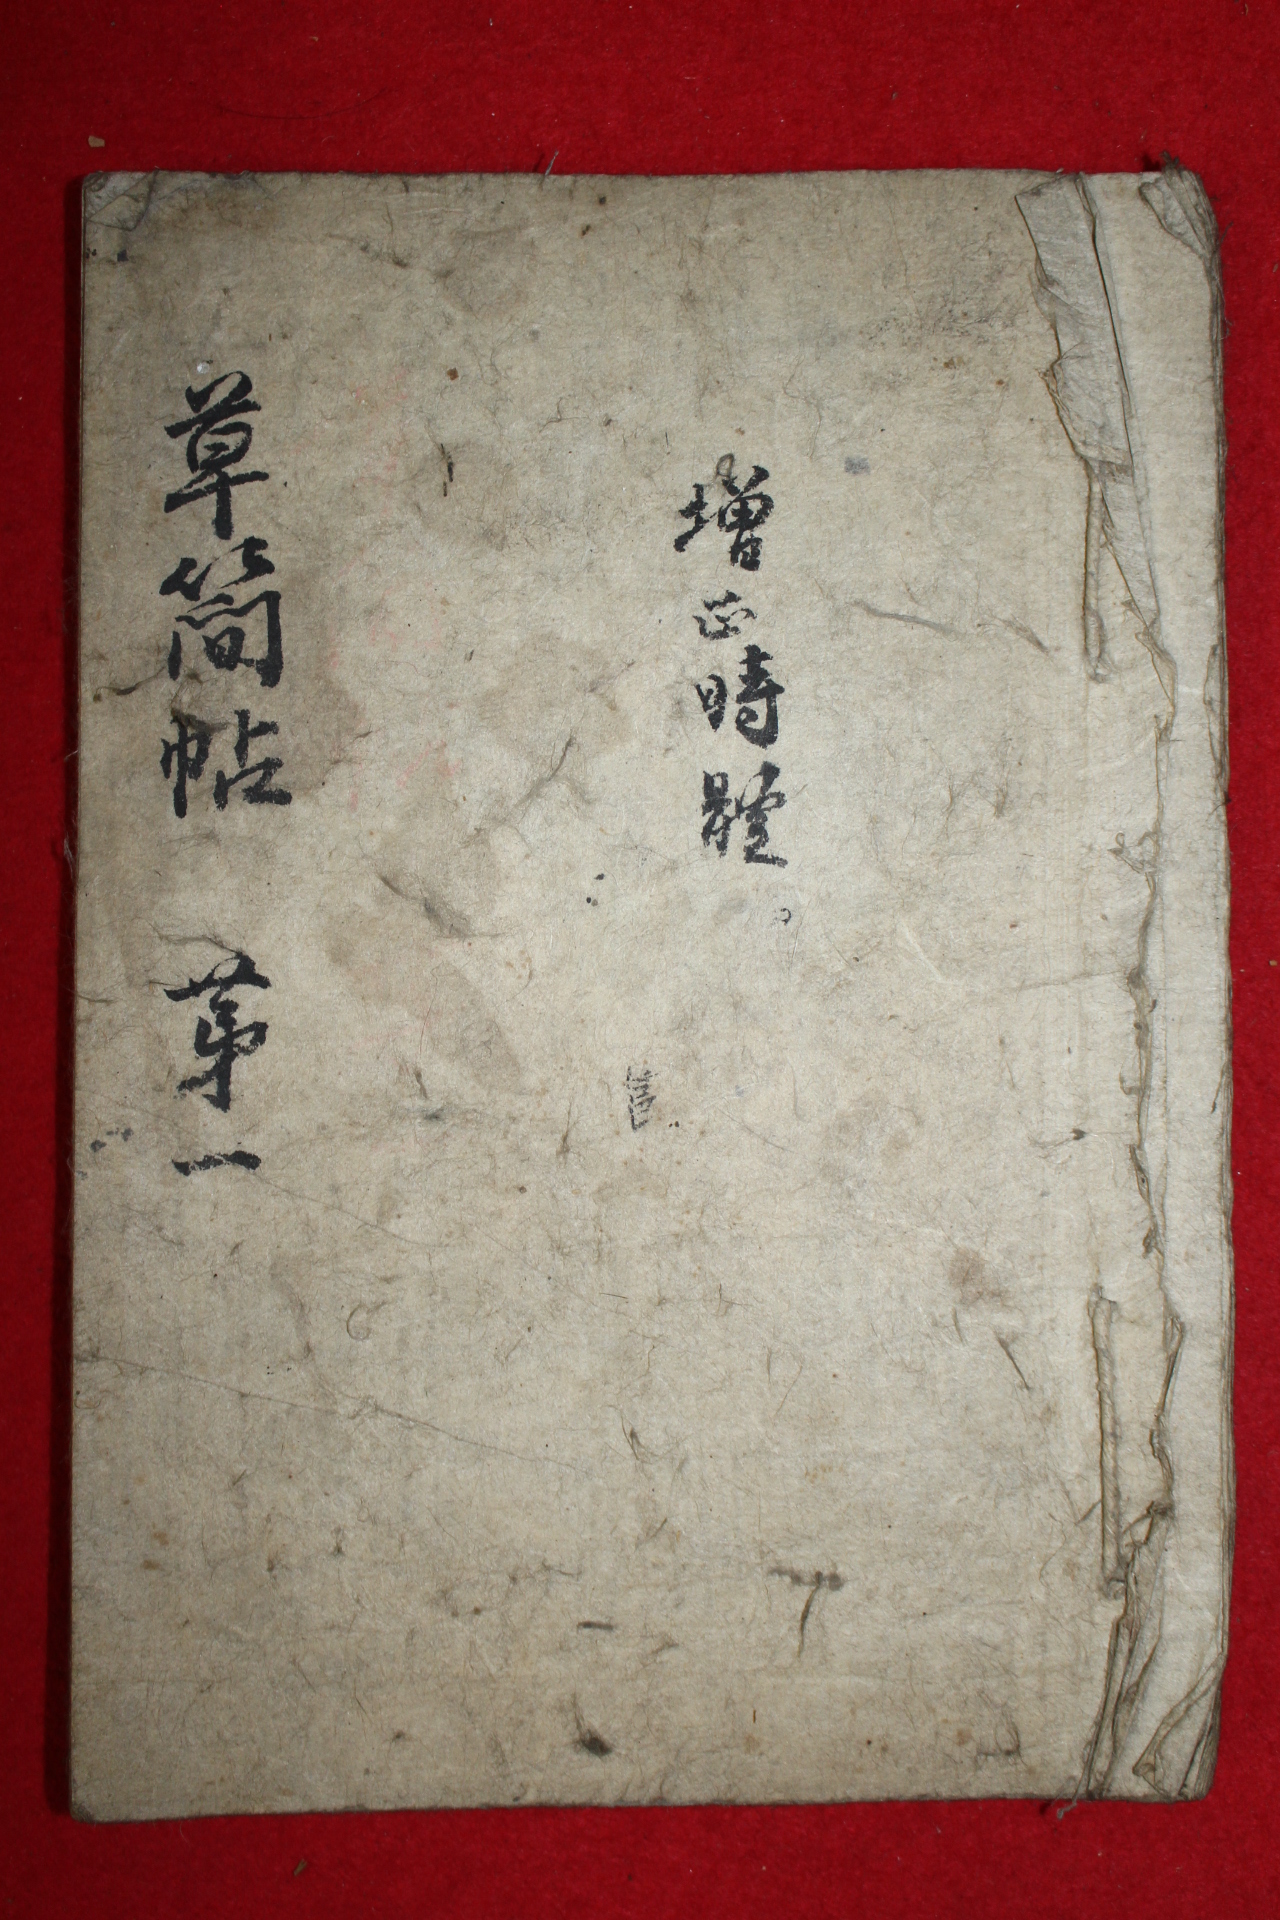 增正時體
草簡帖 苐一